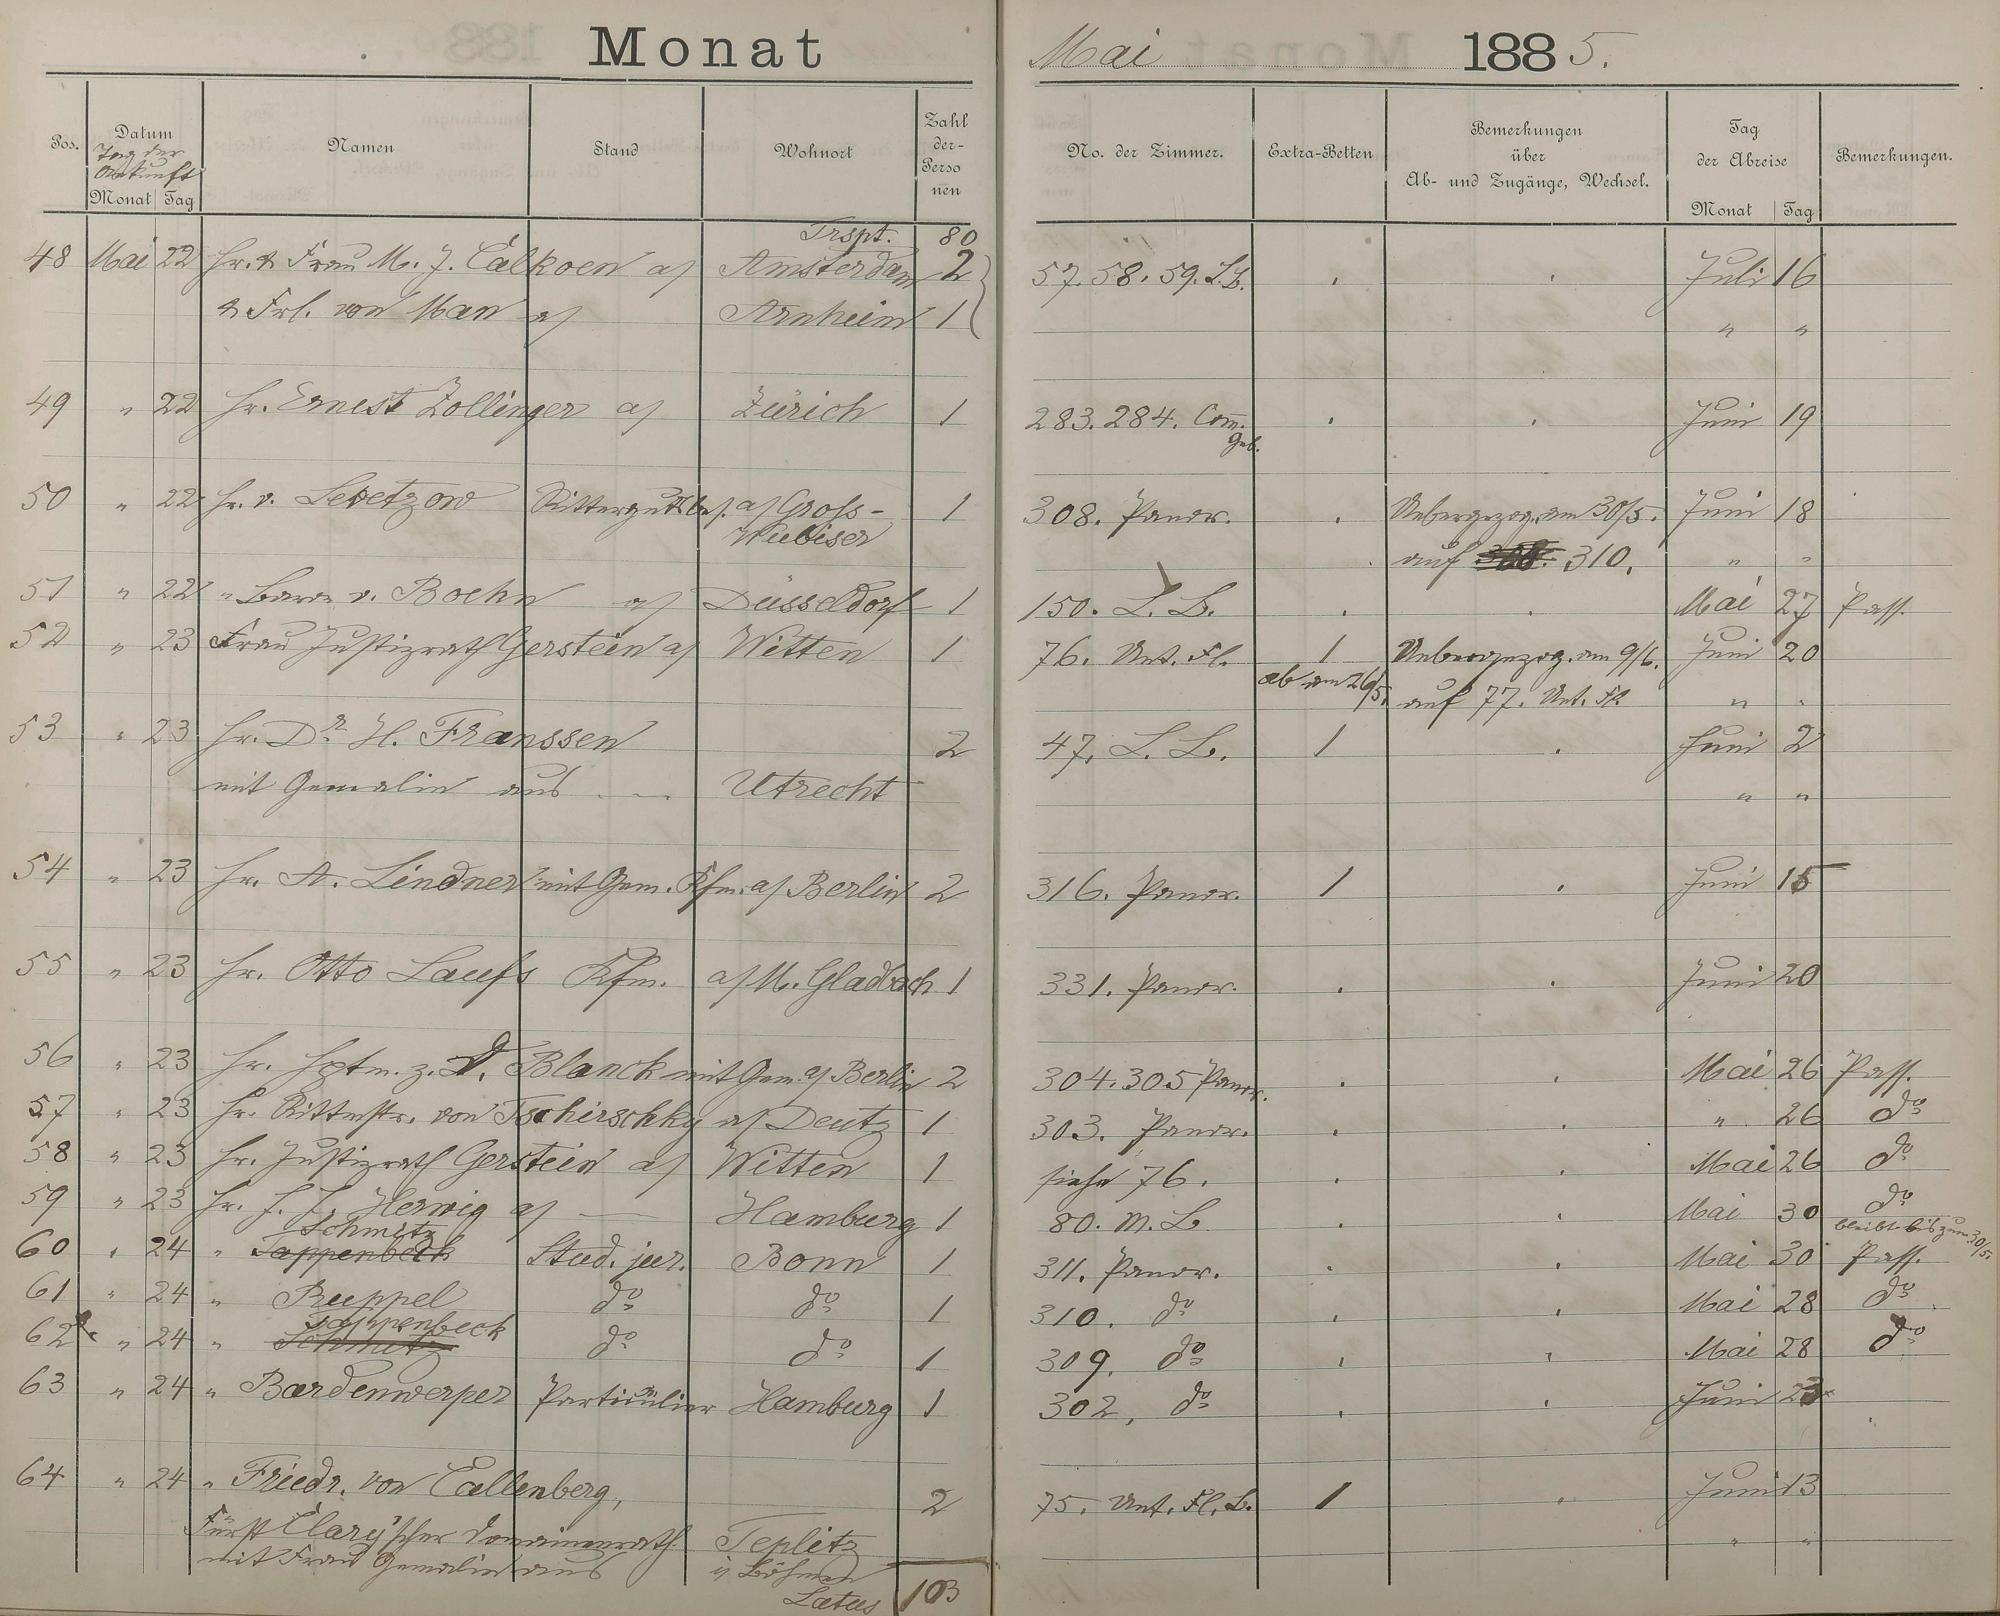 Monat Mai 1885.
Pos. Datum Namen Stand Wohnort Zahl der Personen No. der Zimmer. Extra-Betten Bemerkungen über Ab- und Zugänge, Wechsel. Tag der Abreise Bemerkungen.
Tag der Ankunft
Monat Tag Monat Tag
Trspt. 80
48 Mai 22 Hr. & Frau M. J. Calkoen a/ Amsterdam 2 57. 58. 59. L.B. Juli 16
& Frl. von Man a/ Arnheim 1 " "
49 " 22 Hr. Ernest Zollinger a/ Zürich 1 283. 284. Com. Geb. Juni 19
50 " 22 Hr. v. Levetzow Rittergutsbes. a/ Gross- 1 308. Panor. Uebergezog. am 30/5. Juni 18
Wubiser auf 310. " "
51 " 22 " Baron v. Boehn a/ Düsseldorf 1 150. L. B. Mai 27 Pass.
52 " 23 Frau Justizrath Gerstein a/ Witten 1 76. Unt. Fl. 1 Uebergezog. am 9/6. Juni 20
ab am 26/5. auf 77. Unt. Fl. " "
53 " 23 Hr. Dr. H. Franssen 2 47. L. B. 1 Juni 2
mit Gemalin aus Utrecht " "
54 " 23 Hr. A. Lindner mit Gem. Kfm. a/ Berlin 2 316. Panor. 1 Juni 15
55 " 23 Hr. Otto Laufs Kfm. a/ M. Gladbach 1 331. Panor. Juni 20
56 " 23 Hr. Hptm. z. D. Blanck mit Gem. a/ Berlin 2 304. 305 Panor. Mai 26 Pass.
57 " 23 Hr. Rittmstr. von Tschirschky a/ Deutz 1 303. Panor. " 26 do
58 " 23 Hr. Justizrath Gerstein a/ Witten 1 siehe 76. Mai 26 do
59 " 23 Hr. F. J. Herwig a/ Hamburg 1 80. M. B. Mai 30 do
Schmitz bleibt bis zum 30/5.
60 " 24 " Tappenbeck Stud. jur. Bonn 1 311. Panor. Mai 30 Pass.
61 " 24 " Ruppel do do 1 310. do Mai 28 do
Tappenbeck
62 " 24 " Schmitz do do 1 309. do Mai 28 do
63 " 24 " Bardenwerper Particülier Hamburg 1 302. do Juni
64 " 24 " Friedr. von Callenberg, 2 75. Unt. Fl. B. 1 Juni 13
Fürst Clary'scher Domainenrath Teplitz " "
mit Frau Gemalin aus i/ Böhmen
Latus 103